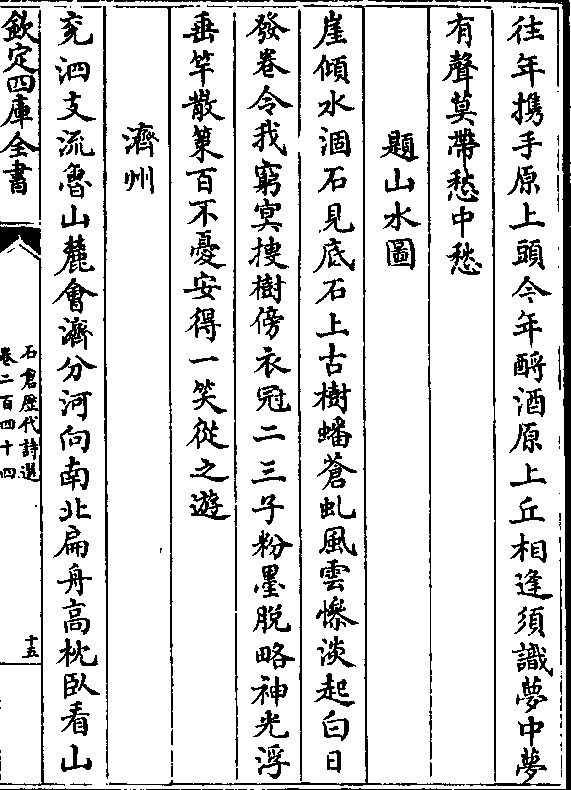 往年携手原上頭今年酹酒原上丘相逢須識夢中夢
有聲莫帶愁中愁
題山水圖
崖傾水涸石見底石上古樹蟠蒼虬風雲慘淡起白日
發卷令我窮冥搜樹傍衣冠二三子粉墨脫略神光浮
垂竿散策百不憂安得一笑從之遊
濟州
兖泗支流魯山麓會濟分河向南北扁舟高枕臥看山
欽定四庫全書
石倉歷代詩選
卷二百四十四
十五